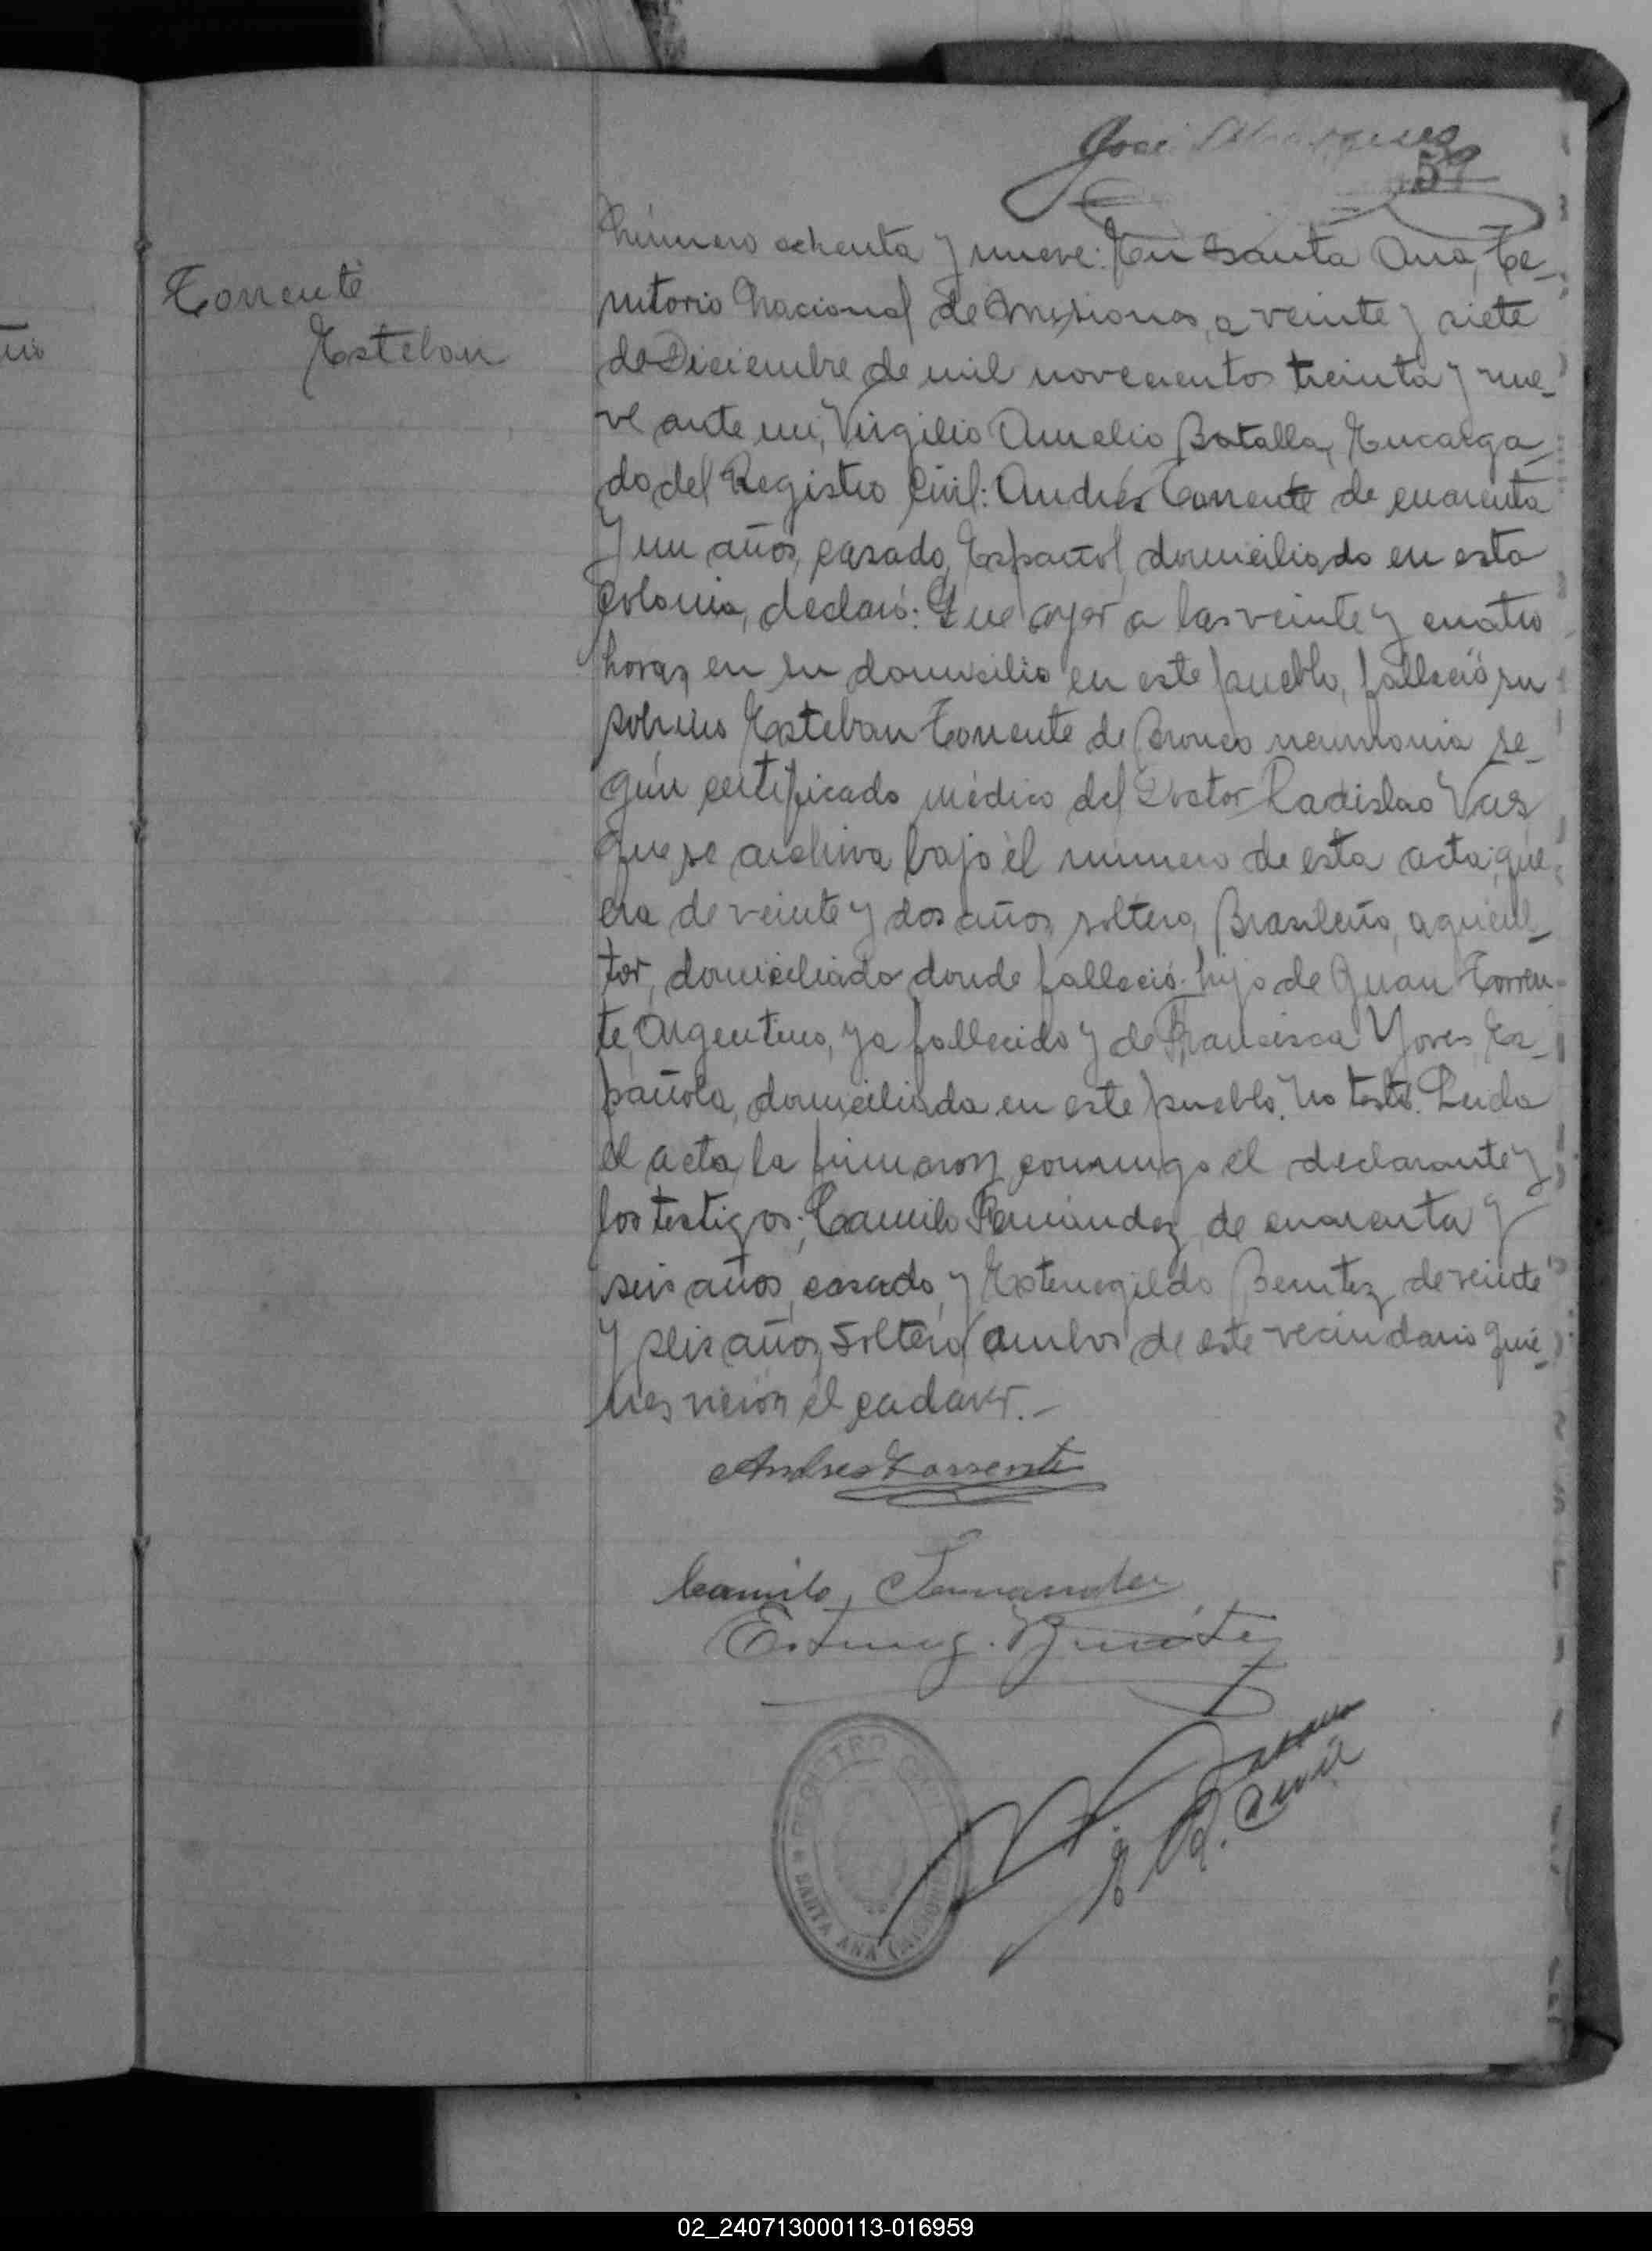 José
59
Torrente
Esteban
Número ochenta y nueve: En Santa Ana, Te-
rritorio Nacional de Misiones, a veinte y siete
de Diciembre de mil novecientos treinta y nue-
ve ante mi, Virgilio Amelio Batalla, Encarga-
do del Registro Civil: Andrés Torrente de cuarenta
y un años, casado, Español, domiciliado en esta
Colonia, declaró: Que ayer a las veinte y cuatro
horas en su domicilio en este pueblo, falleció su
sobrino Esteban Torrente de Bronco neumonia se-
gún certificado médico del Doctor Ladislao Vas
que se archiva bajo el número de esta acta; que
era de veinte y dos años, soltero, Brasileño, agricul-
tor, domiciliado donde falleció. hijo de Juan Torren-
te, Argentino, ya fallecido y de Francisca Yores, Es-
pañola, domiciliada en este pueblo. No testó. Leida
el acta, la firmaron conmigo el declarante y
los testigos; Camilo Fernández, de cuarenta y
seis años, casado, y Estenogildo Benitez, de veinte
y seis años, soltero, ambos de este vecindario quié-
nes vieron el cadaver.-
Andres Torrente
Camilo Fernandez
Estenog. Benitez
V. A. Batalla
E. R. Civil
REGISTRO CIVIL
SANTA ANA (MISIONES)
02_240713000113-016959